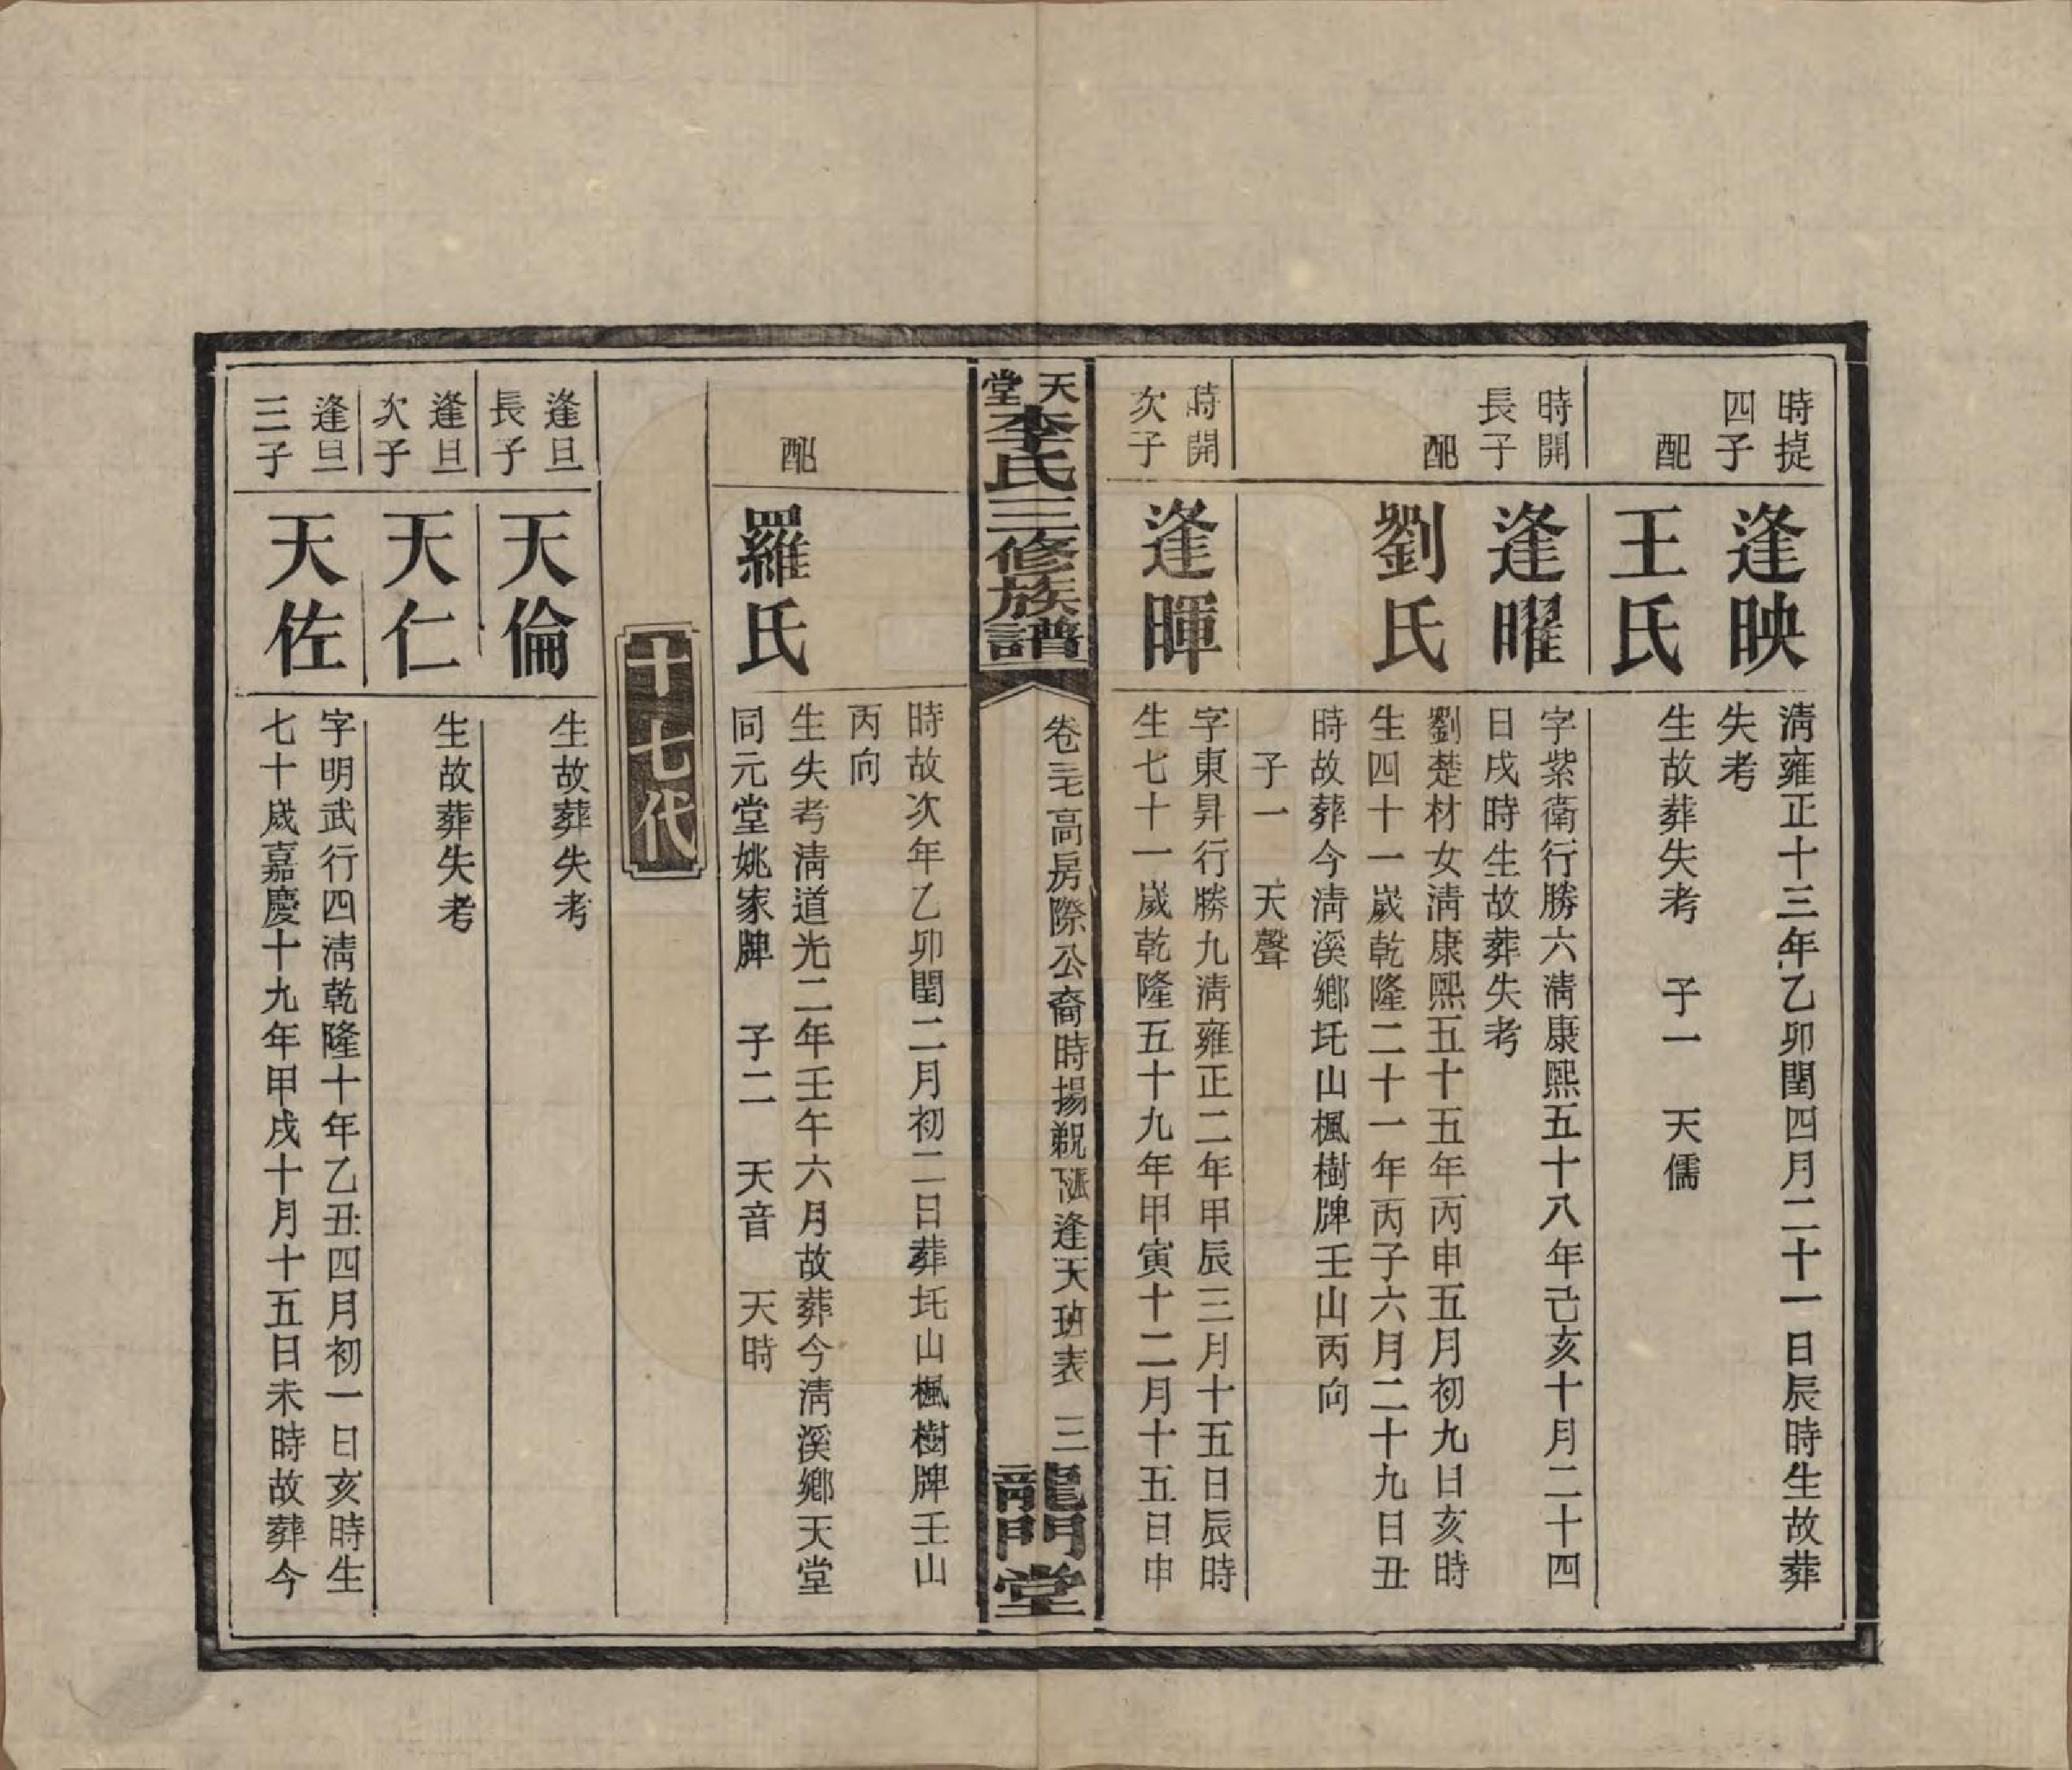 時提
四子
逢映
清雍正十三年乙卯閏四月二十一日辰時生故葬
失考
配
王氏
生故葬失考　子一　天儒
時開
長子
逢曜
字紫衛行勝六清康熙五十八年己亥十月二十四
日戌時生故葬失考
配
劉氏
劉楚材女清康熙五十五年丙申五月初九日亥時
生四十一歲乾隆二十一年丙子六月二十九日丑
時故葬今清溪鄉圫山楓樹牌壬山丙向
子一　天聲
時開
次子
逢暉
字東昇行勝九清雍正二年甲辰三月十五日辰時
生七十一歲乾隆五十九年甲寅十二月十五日申
天堂李氏三修族譜
卷三七高房際公裔時揚覶下逢天班表　三
龍門堂
時故次年乙卯閏二月初二日葬圫山楓樹牌壬山
丙向
配
羅氏
生失考清道光二年壬午六月故葬今清溪鄉天堂
同元堂姚家牌　子二　天音　天時
十七代
逢旦
長子
天倫
生故葬失考
逢旦
次子
天仁
生故葬失考
逢旦
三子
天佐
字明武行四清乾隆十年乙丑四月初一日亥時生
七十歲嘉慶十九年甲戌十月十五日未時故葬今